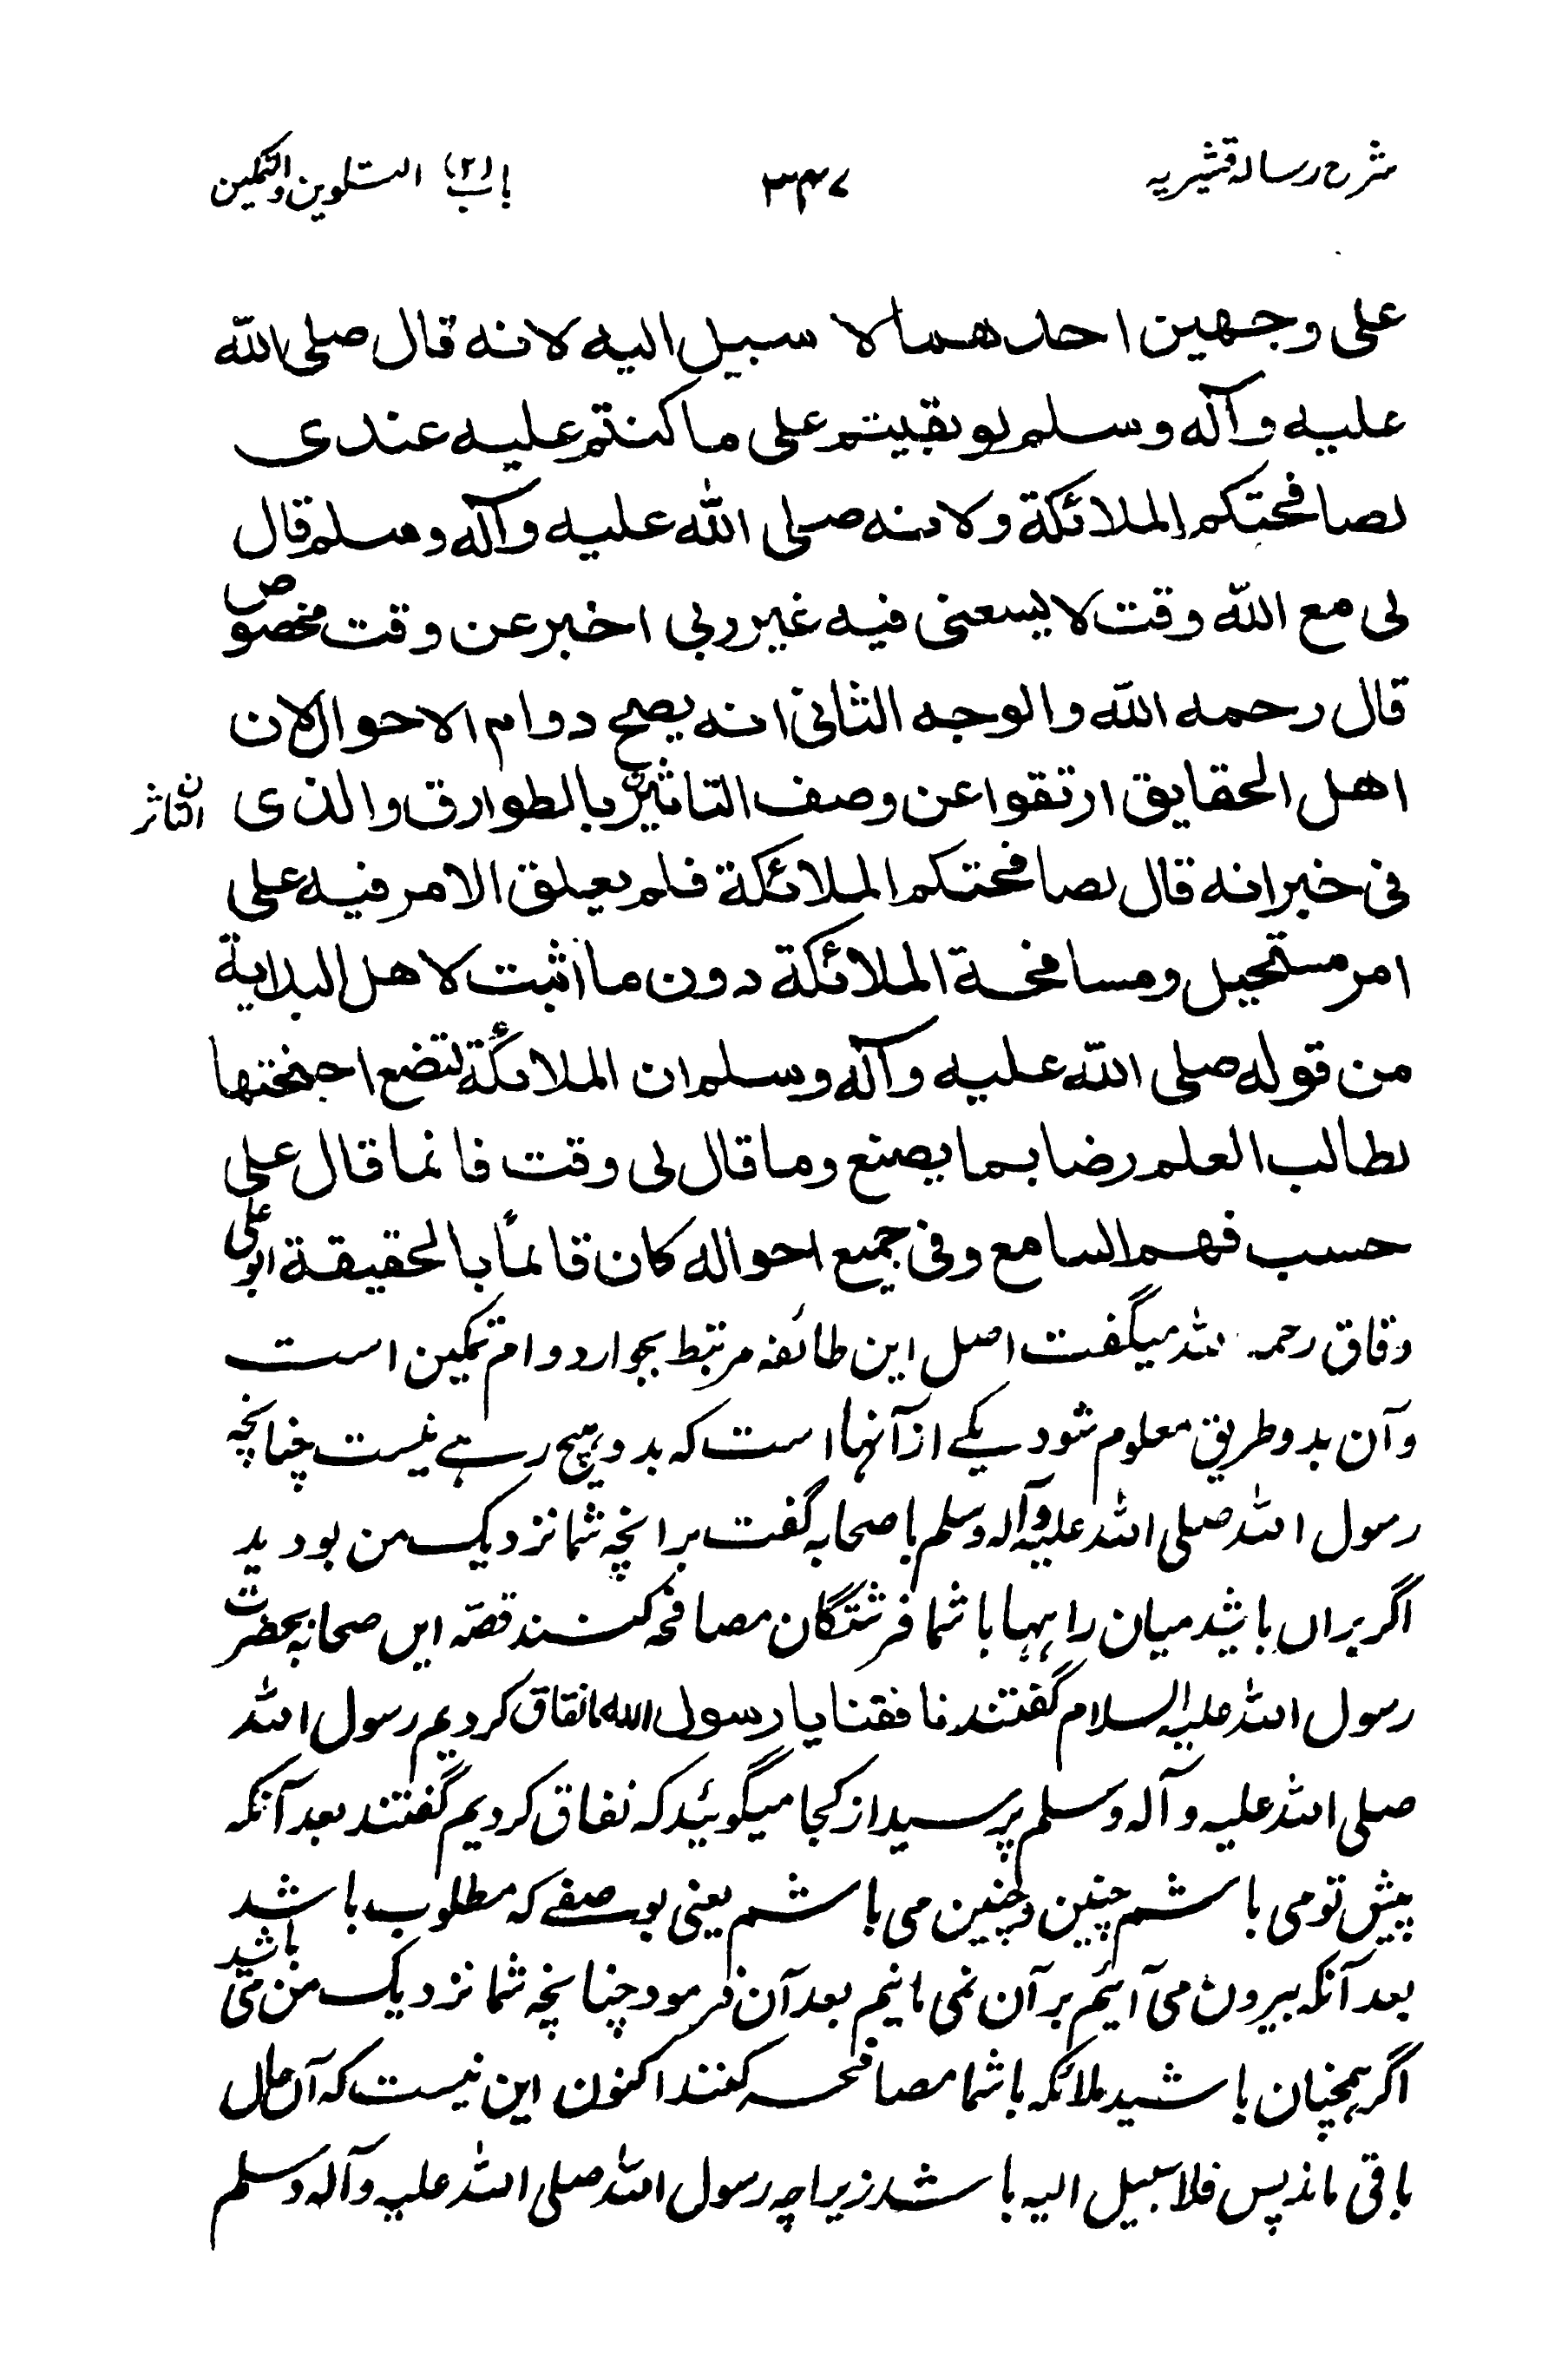 شرح رسالہ قشیریہ ۳۴۷ باب (۲) التلوین والتمکین
علی وجهین احدهما لا سبیل الیه لانه قال صلی الله
علیه وآله وسلم لو بقیتم علی ما کنتم علیه عندی
لصافحتکم الملائکة ولانه صلی الله علیه وآله وسلم قال
لی مع الله وقت لا یسعنی فیه غیر ربی اخبر عن وقت مخصوص
قال رحمه الله والوجه الثانی انه یصح دوام الاحوال لان
اهل الحقایق ارتقوا عن وصف التاثیرن بالطوارق والذی
ن التاثر
فی خبر انه قال لصافحتکم الملائکة فلم یعلق الامر فیه علی
امر مستحیل ومسافحة الملائکة دون ما اثبت لاهل البدایة
من قوله صلی الله علیه وآله وسلم ان الملائکة لتضع اجنحتها
لطالب العلم رضا بما یصنع وما قال لی وقت فانما قال علی
حسب فهم السامع وفی جمیع احواله کان قائماً بالحقیقة ابو علی
دقاق رحمہ اللہ میگفت اصل این طائفہ مرتبط بجوار دوام تمکین است
وآن بدو طریق معلوم شود یکے ازآنہا است کہ بدو ہیچ رہے نیست چنانچہ
رسول اللہ صلی اللہ علیہ وآلہ وسلم با صحابہ گفت برانچہ شما نزدیک من بودید
اگر براں باشید میان راہہا با شما فرشتگان مصافحہ کنند قصّہ ایں صحابہ بحضرت
رسول اللہ علیہ السلام گفتند نافقنا یا رسول الله ما نفاق کردیم رسول اللہ
صلی اللہ علیہ وآلہ وسلم پرسید از کجا میگوئید کہ نفاق کردیم گفتند بعد آنکہ
پیش تو می باشم چنین و چنین می باشم یعنی بوصفے کہ مطلوب باشد
بعد آنکہ بیرون می آئیم برآن نمی مانیم بعد آن فرمود چنانچہ شما نزدیک من می باشد
اگر ہمچنان باشید ملائکہ باشما مصافحہ کنند اکنون این نیست کہ آن حال
باقی ماند پس فلا سبیل الیہ باشد زیراچہ رسول اللہ صلی اللہ علیہ وآلہ وسلم